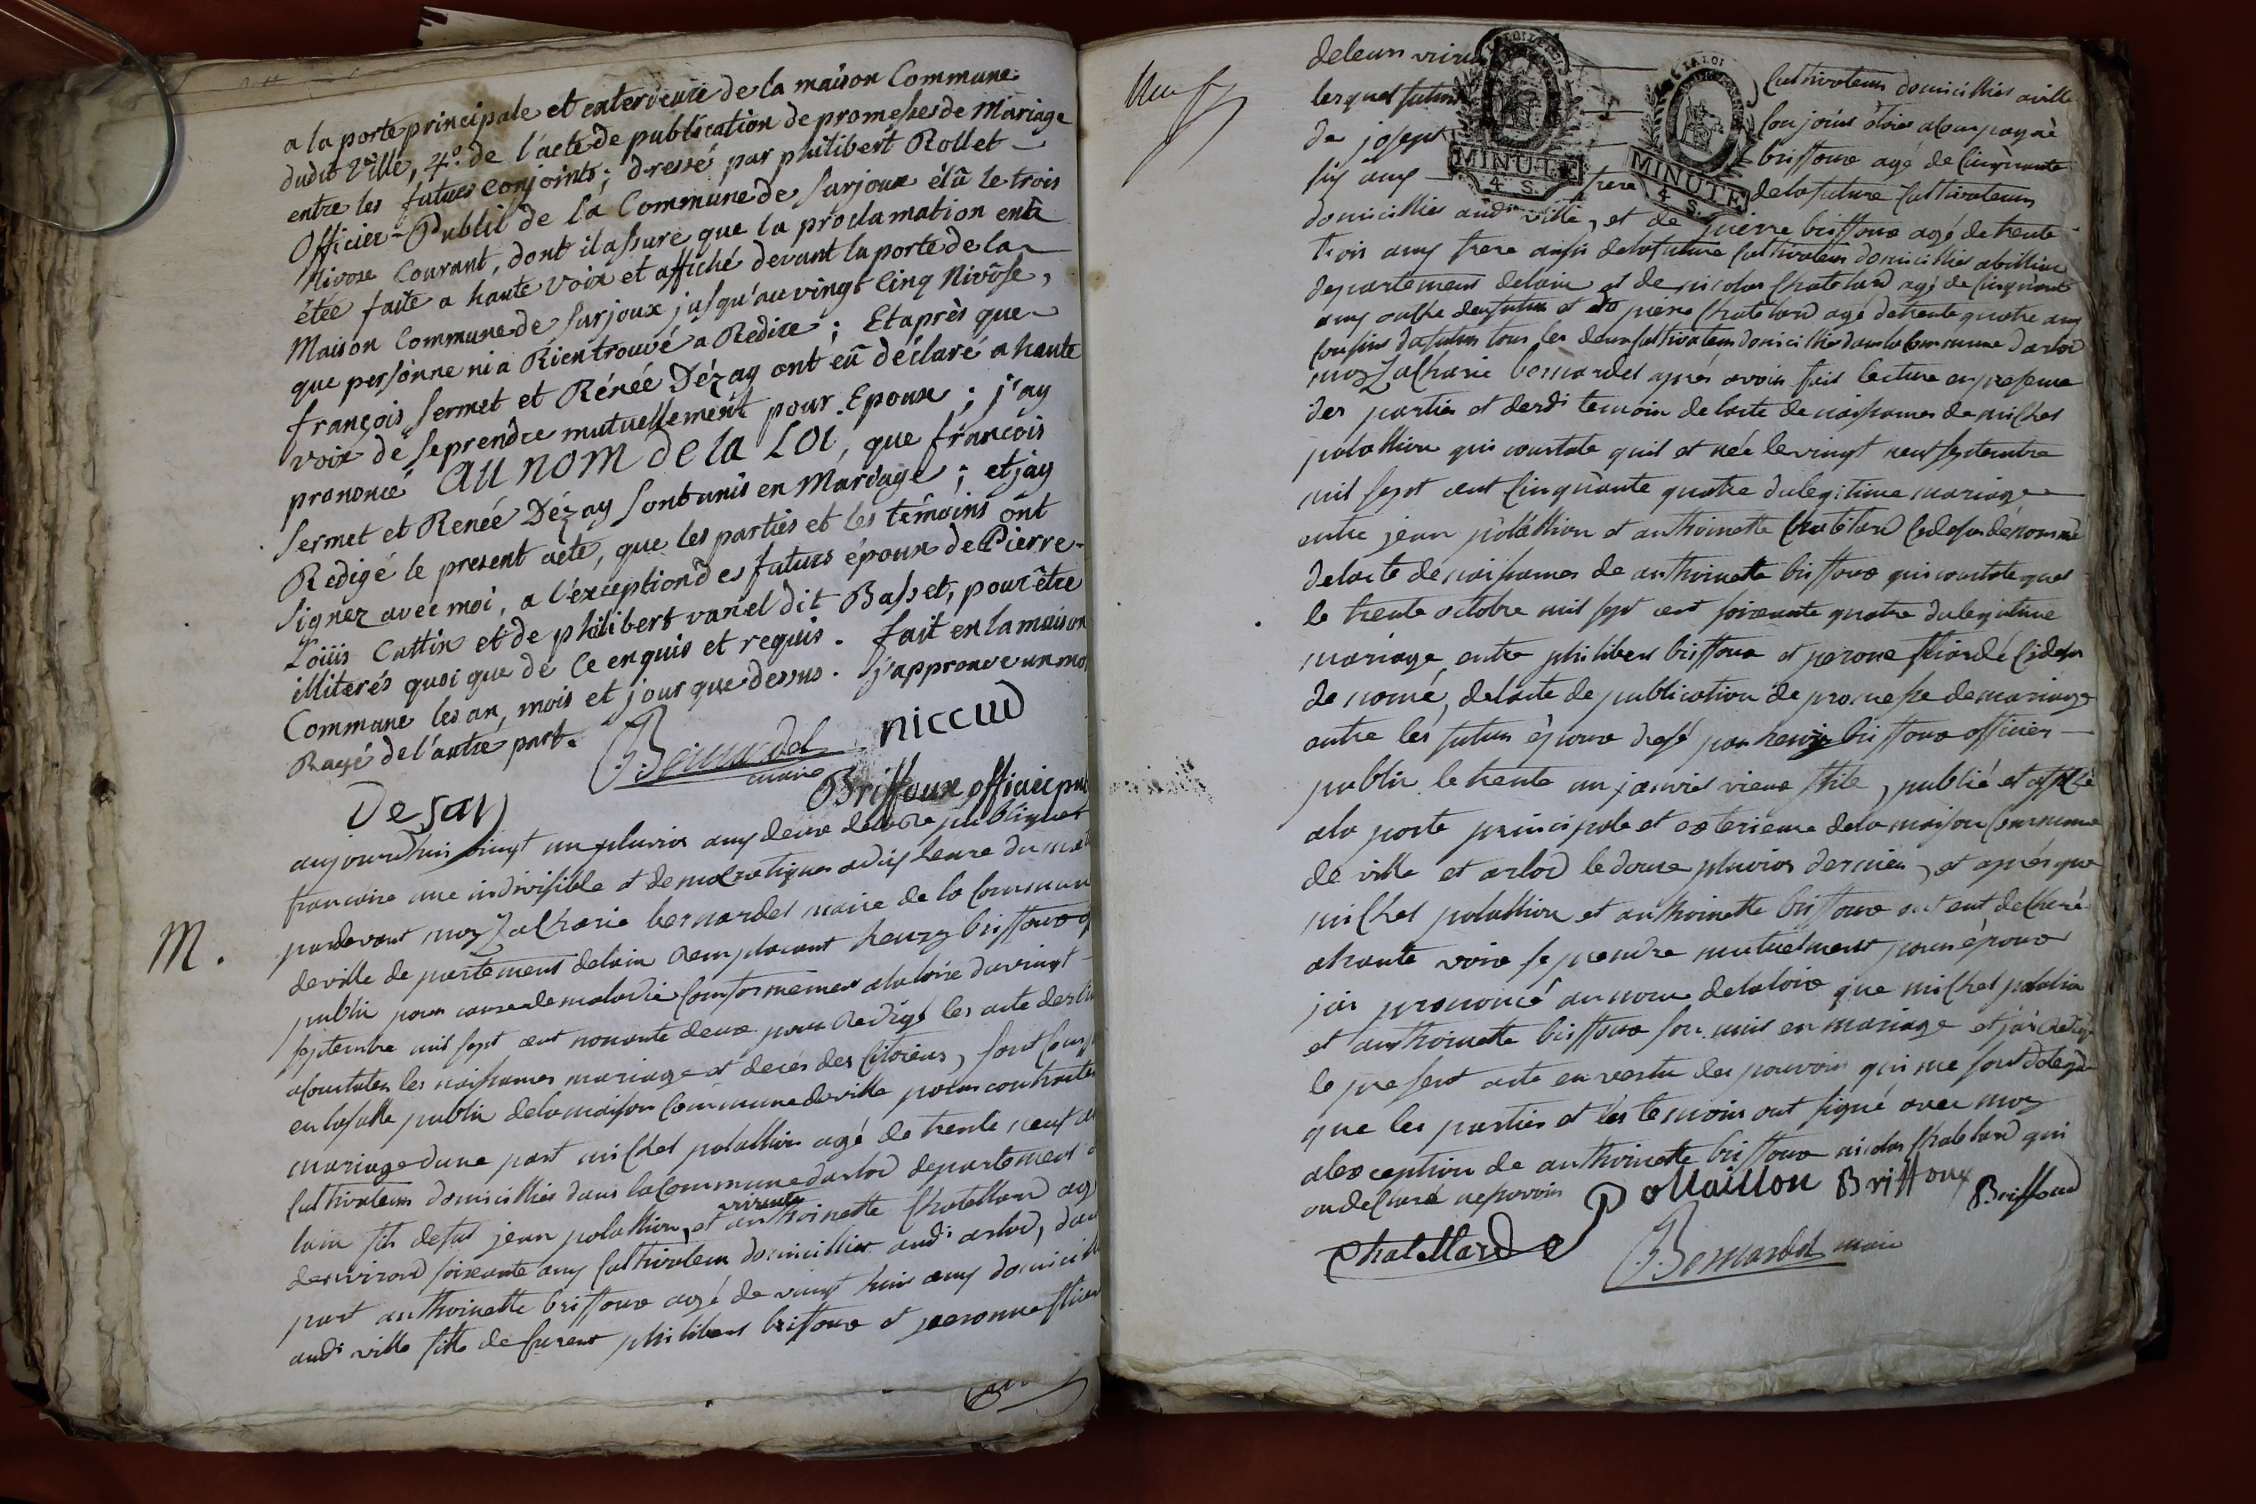 a la porte principale et exterieure de la maison Commune
dudit Ville, 4.º de l'acte de publication de promesses de Mariage
entre les futurs conjoints; dressé par philibert Rollet
Officier-Public de la Commune de Surjoux élû le trois
Nivose Courant, dont il assure que la proclamation en a
étée faite a haute Voix et affiché devant la porte de la
Maison Commune de Surjoux jusqu'au vingt Cinq Nivôse,
que persônne ni a Rien trouvé a Redire; Et après que
françois Sermet et Rénée Dézay ont eû déclaré a haute
voix de se prendre mutuellement pour Epoux; j'ay
prononcé AU NOM de la LOI, que françois
Sermet et Renée Dézay sont unis en Mariage; et j'ay
Redigé le present acte, que les parties et les témoins ont
signez avec moi, a l'éxception des futurs époux de Pierre
Loüis Cuttin et de philibert variel dit Basset, pour être
illiterés quoi que de Ce enquis et requis. fait en la maison
Commune les an, mois et jour que dessus. j'approuve un mo
Rayé de l'autre part.
Bernardel maire
niccud
Desay
Briffoux officier pu
aujourdhuis vingt un pluvios ans deux de la Re publiques
francoise une indivisible et democratiques a dix heure du mat
pardevant moy Zacharie bernardel maire de la Commun
M.
de ville de partement delain Remplacant henry briffoux
public pour cause de maladie Conformement a la loix du vingt
septembre mil sept cent nonante deux pour Redigé les acte destin
a Constater les naissances mariage et deces des Citoiens, sont Com
en la salle public de la maison Commune de ville pour contracter
mariage dune part michel polathion agé de trente neuf an
Cultivateur domicilliés dans la Commune darlod departement
lain fils de fut jean polathion, et vivante anthoinette Chatellard ag
denviron soixante ans Cultivateur domicillier audi arlod, dau
part anthoinette briffoux agé de vingt huis ans domicill
audi ville fille de furent philibert briffoux et peronne
deleurs vivant Cultivateur domicilliés a ville
lesquel futur Conjoins etoies acompagné
de joseph briffoux agé de Cinquante
six ans frere de la future Cultivateur
domicilliés audi ville, et de pierre briffoux agé de trente
trois ans frere aussi de la future Cultivateur domicilliés
departement delain et de nicolas Chatelard agé de Cinquante
ans oncle du futur et de pierre Chatelard agé de trente quatre ans
Cousin du futur tous les deux Cultivateur domicilliés dans la Commune darlod
moy Zacharie bernardel après avoir fait lecture en presence
des parties et desdi temoin de lacte de naissances de michel
polathion qui constate quil et née le vingt neuf septembre
mil sept cent Cinquante quatre du legitime mariage
entre jean polathion et anthoinette Chatelard Cidesus dénommé
de lacte de naissances de anthoinette briffoux qui constate quel
le trente octobre mil sept cent soixante quatre du legitime
mariage entre philibert briffoux et perone Cidesus
denomé, de lacte de publication de promesse de mariage
entre les futurs epoux dressé par henry briffoux officier
public le trente un janvier vieux stile, publié et affiché
a la porte principale et exterieure de la maison Commune
de ville et arlod le douze pluvios dernier, et après que
michel polathion et anthoinette briffoux ont eut declaré
a haute voix se prendre mutuelment pour époux
jai prononcé au nom de la loix que michel polathion
et anthoinette briffoux son unis en mariage et jai Redigé
le present acte en vertu des pouvoir qui me sont delegué
que les parties et les temoins ont signé avec moy
alexception de anthoinette briffoux nicolas Chatelard qui
on declaré ne savoir
Pollaillon Briffoux Briffoud
Chatellard
Bernardel maire
LA LOI
MINUTE
4 S.
LA LOI
MINUTE
4 S.